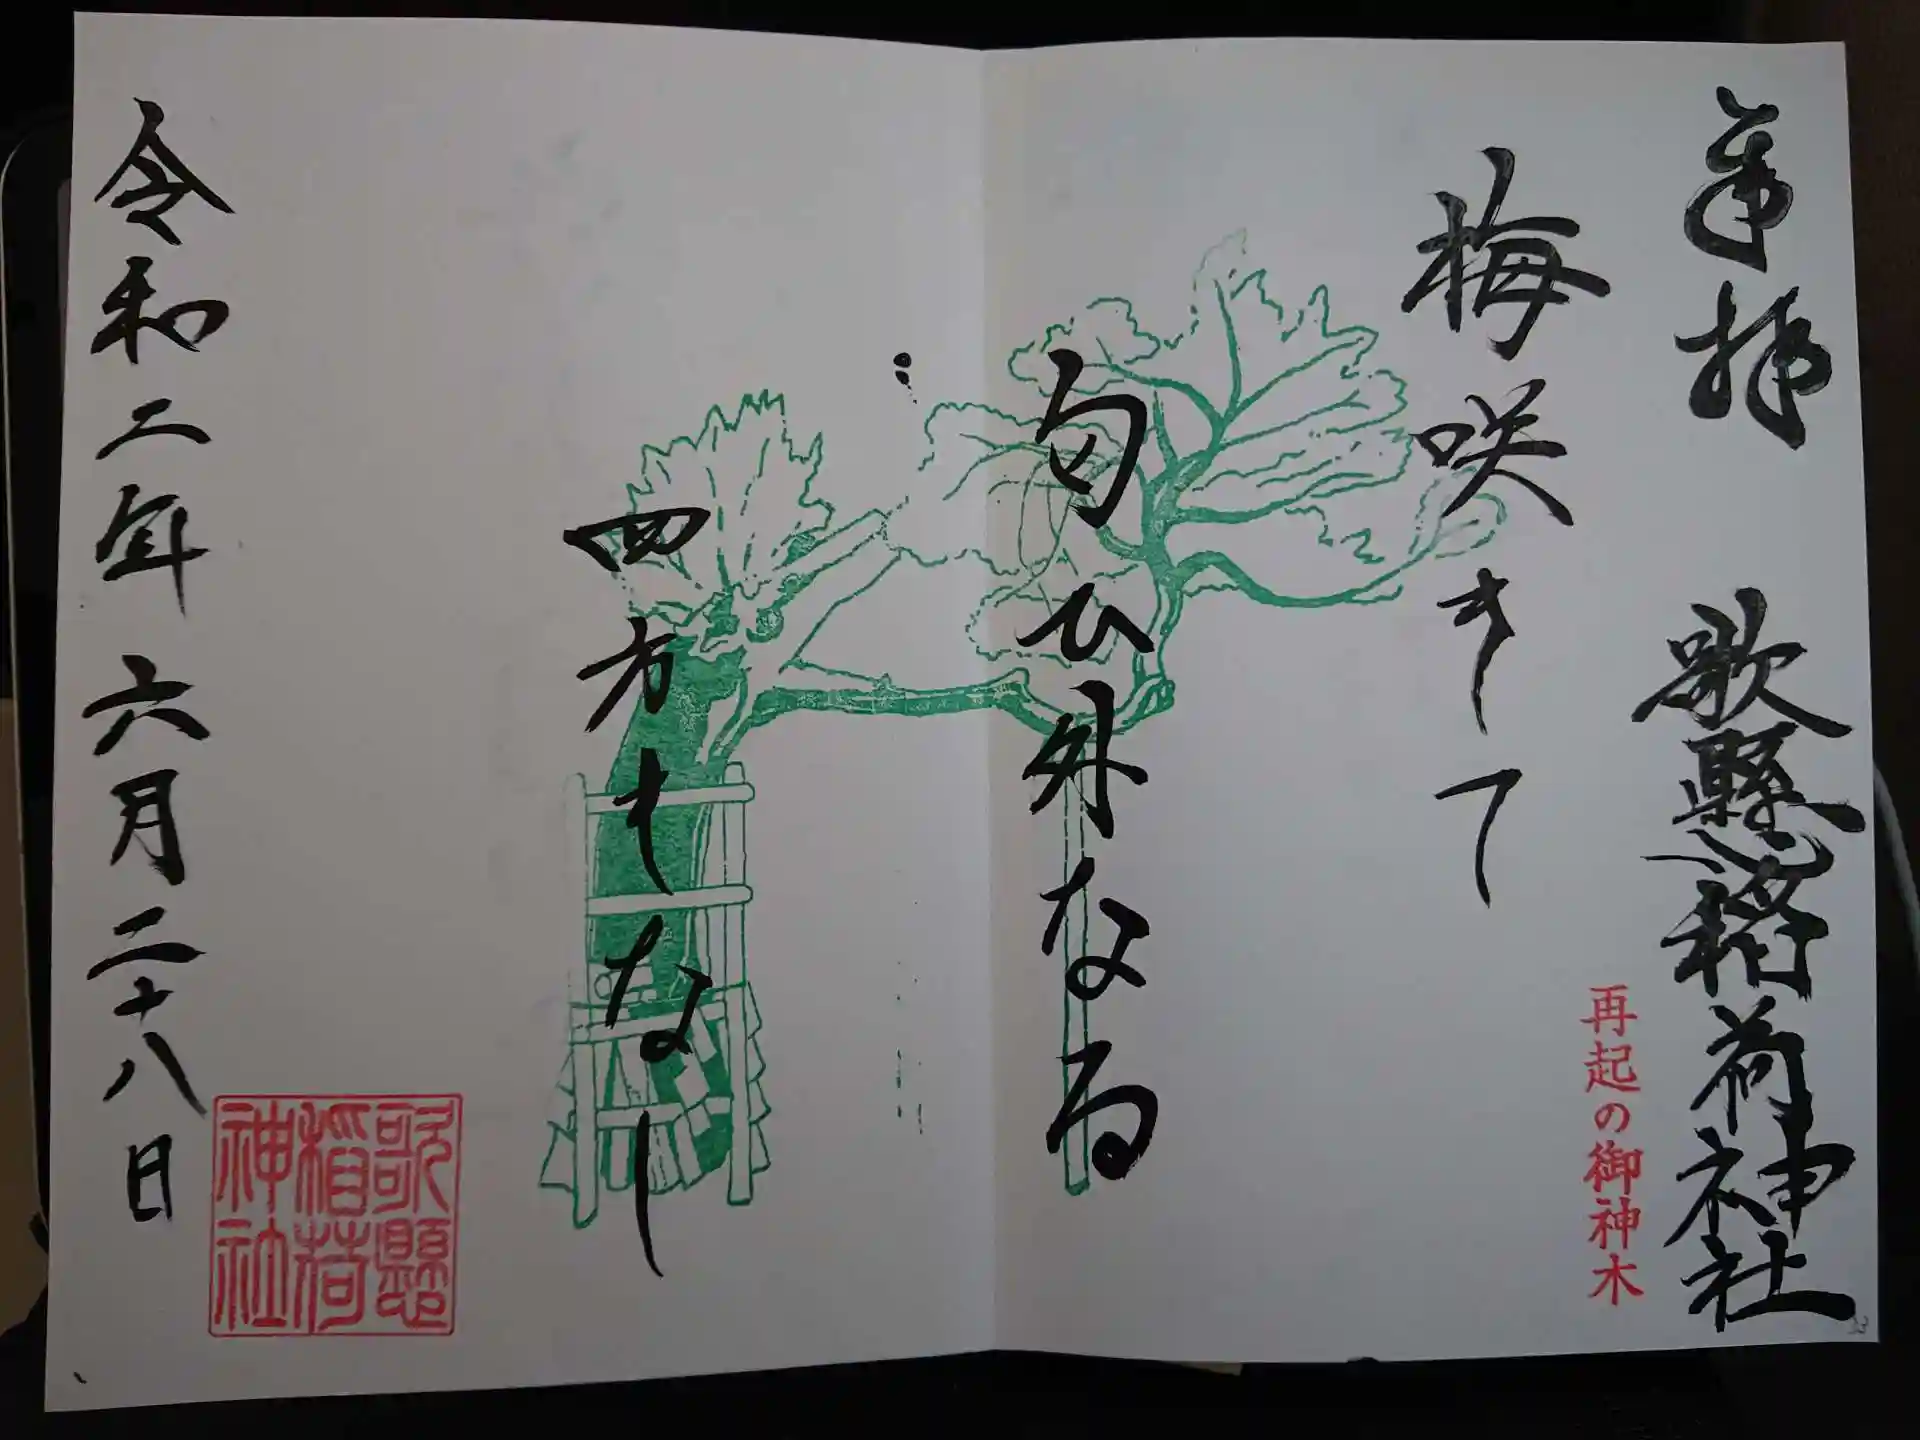 奉拝 歌懸稲荷神社
再起の御神木
梅咲きて
匂ひ外なる
四方もなし
令和二年六月二十八日
歌懸
稲荷
神社